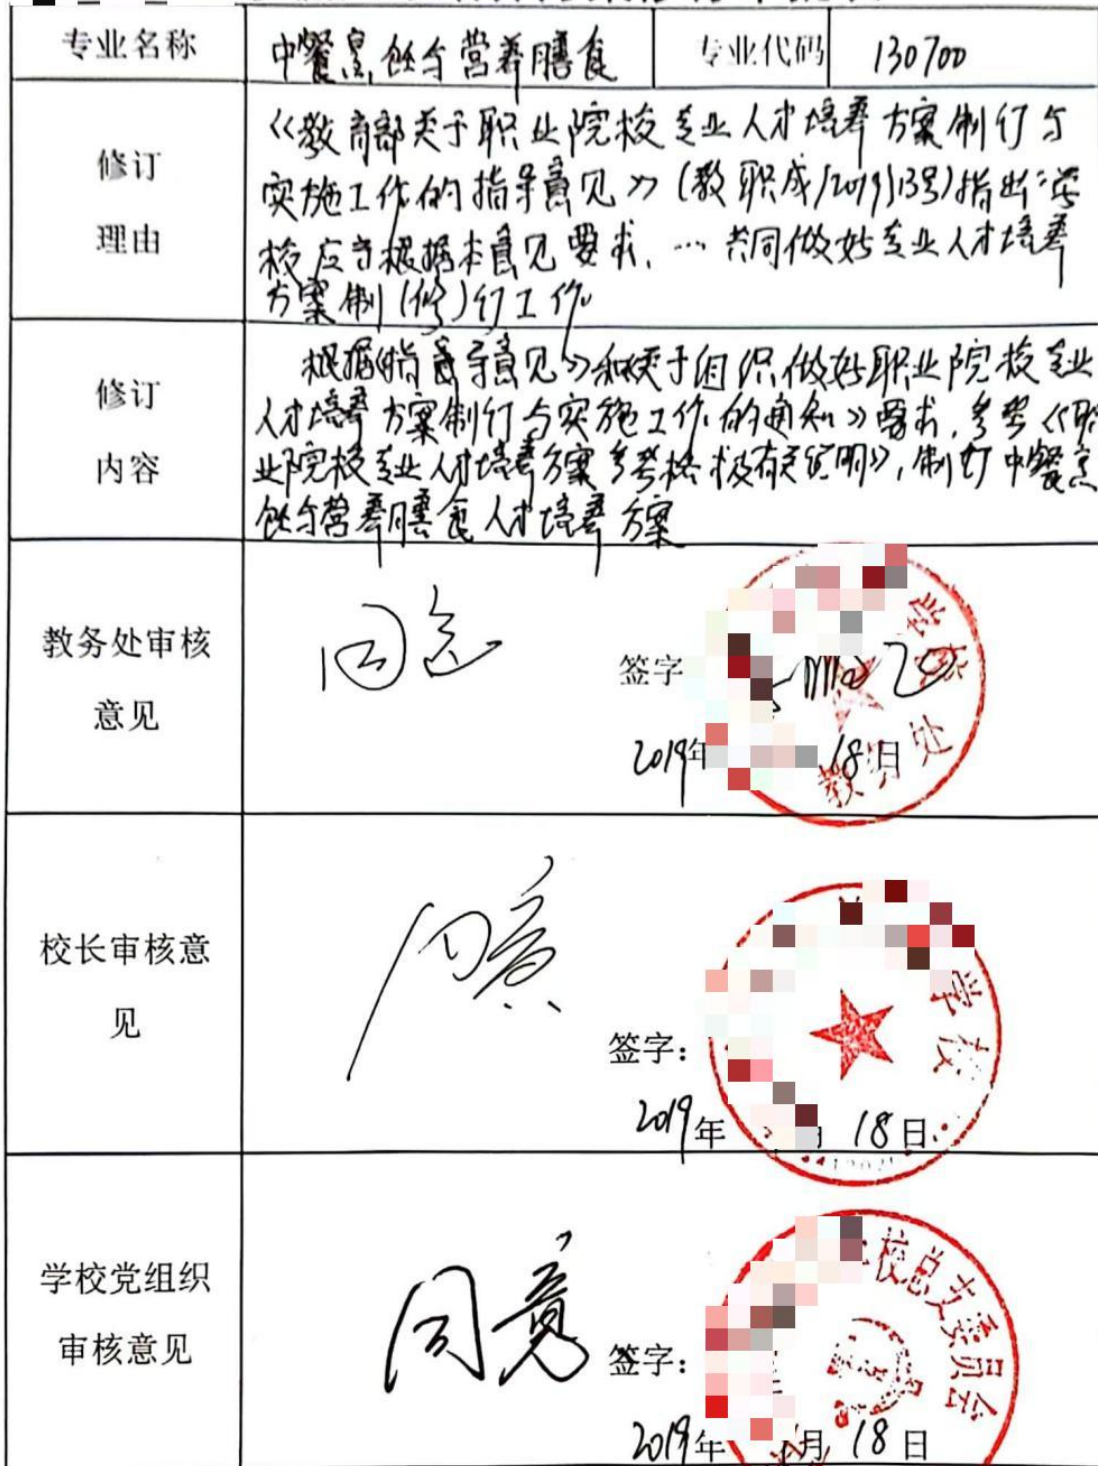 专业名称 中餐烹饪与营养膳食 专业代码 130700
修订
理由
《教育部关于职业院校专业人才培养方案制订与
实施工作的指导意见》(教职成[2019]13号)指出:学
校应当根据本意见要求,…共同做好专业人才培养
方案制(修)订工作
修订
内容
根据《指导意见》和《关于组织做好职业院校专业
人才培养方案制订与实施工作的通知》要求,参考《职
业院校专业人才培养方案参考格式及有关说明》,制订中餐烹
饪与营养膳食人才培养方案
教务处审核
意见
同意
签字
2019年 18日
学校
教务处
校长审核意
见
同意
签字:
2019年 18日
学校
学校党组织
审核意见
同意
签字:
2019年 月18日
校总支委员会